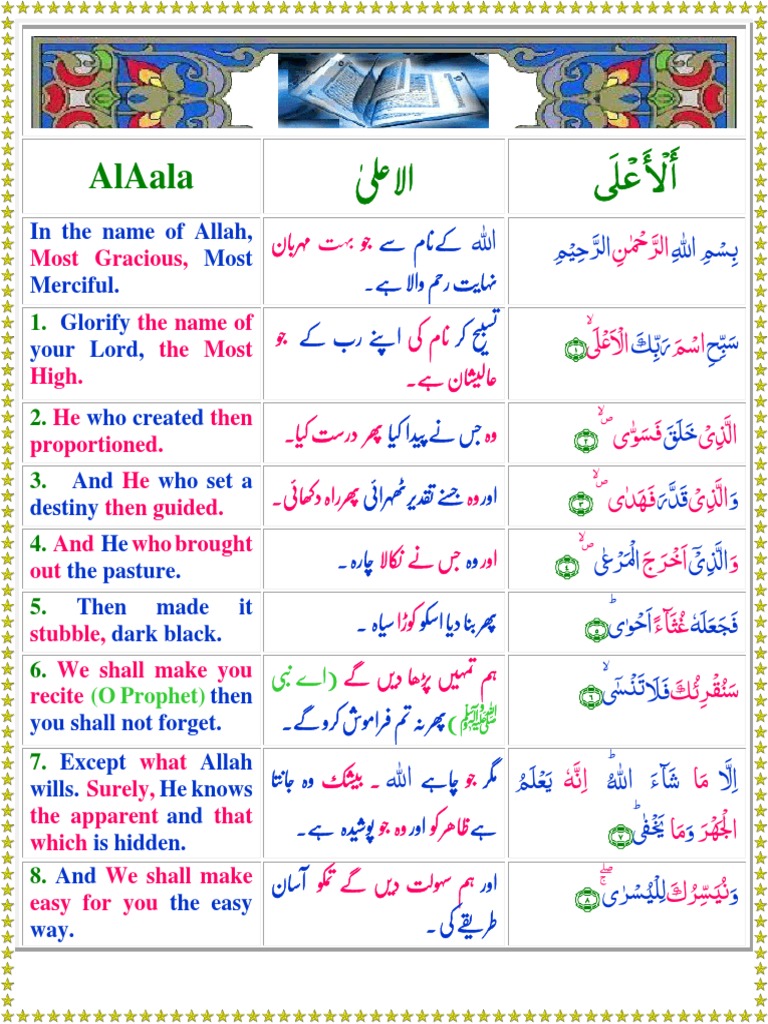 AlAala
الاعلیٰ
أَلْأَعْلَى
In the name of Allah,
Most Gracious, Most
Merciful.
اللہ کےنام سے جو بہت مہربان
نہایت رحم والا ہے۔
بِسْمِ اللّٰهِ الرَّحْمٰنِ الرَّحِيْمِ
1. Glorify the name of
your Lord, the Most
High.
تسبیح کر نام کی اپنے رب کے جو
عالیشان ہے۔
سَبِّحِ اسْمَ رَبِّكَ الْاَعْلَىۙ ۝۱
2. He who created then
proportioned.
وہ جس نے پیدا کیا پھر درست کیا۔
الَّذِىْ خَلَقَ فَسَوّٰىۙ ص ۝۲
3. And He who set a
destiny then guided.
اور وہ جسنے تقدیر ٹھہرائی پھر راہ دکھائی۔
وَالَّذِىْ قَدَّرَ فَهَدٰىۙ ص ۝۳
4. And He who brought
out the pasture.
اور وہ جس نے نکالا چارہ ۔
وَالَّذِىْٓ اَخْرَجَ الْمَرْعٰىۙ ص ۝۴
5. Then made it
stubble, dark black.
پھر بنا دیا اسکو کوڑا سیاہ ۔
فَجَعَلَهٗ غُثَآءً اَحْوٰىؕ ۝۵
6. We shall make you
recite (O Prophet) then
you shall not forget.
ہم تمہیں پڑھا دیں گے (اے نبی
ﷺ) پھر نہ تم فراموش کروگے۔
سَنُقْرِئُكَ فَلَا تَنْسٰٓىۙ ۝۶
7. Except what Allah
wills. Surely, He knows
the apparent and that
which is hidden.
مگر جو چاہے اللہ ۔ بیشک وہ جانتا
ہے ظاهر کو اور وہ جو پوشیدہ ہے۔
اِلَّا مَا شَآءَ اللّٰهُؕ اِنَّهٗ يَعْلَمُ
الْجَهْرَ وَمَا يَخْفٰىؕ ۝۷
8. And We shall make
easy for you the easy
way.
اور ہم سہولت دیں گے تمکو آسان
طریقے کی ۔
وَنُيَسِّرُكَ لِلْيُسْرٰىۖۚ ۝۸